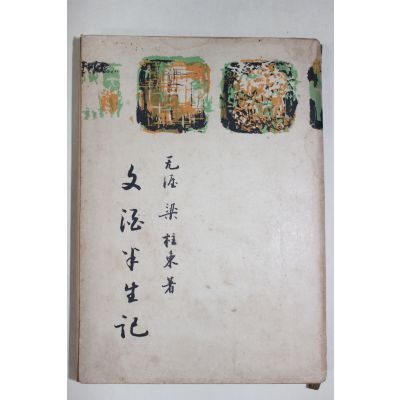 无涯 梁柱東 著
文酒半生記